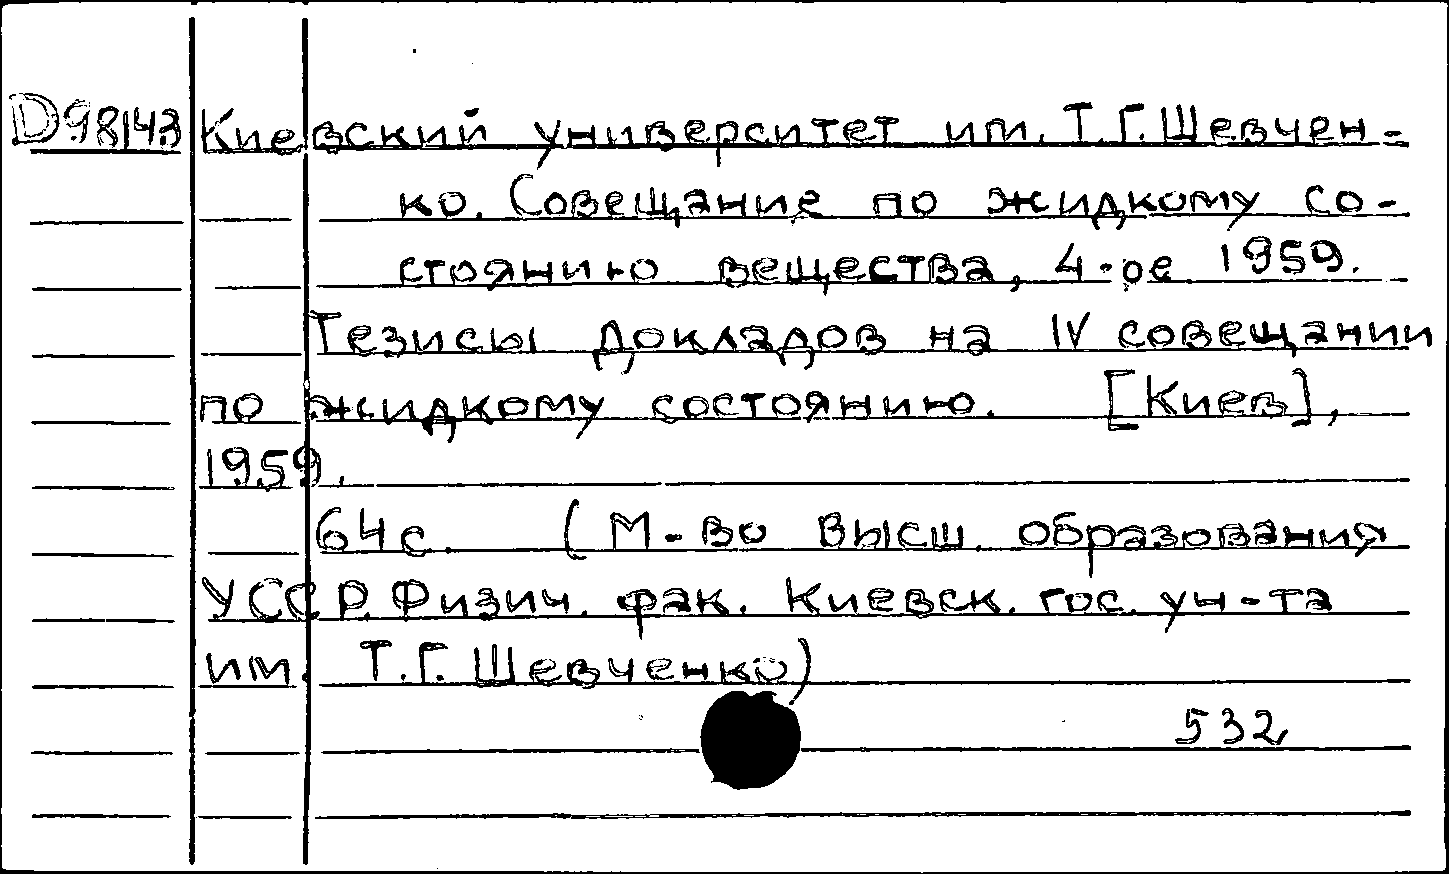 D98/43 Киевский университет им. Т.Г. Шевчен-
ко. Совещание по жидкому со-
стоянию вещества, 4-ое. 1959.
Тезисы докладов на IV совещании
по жидкому состоянию. [Киев],
1959.
64 с. (М-во высш. образования
УССР. Физич. фак. Киевск. гос. ун-та
им. Т.Г. Шевченко)
532